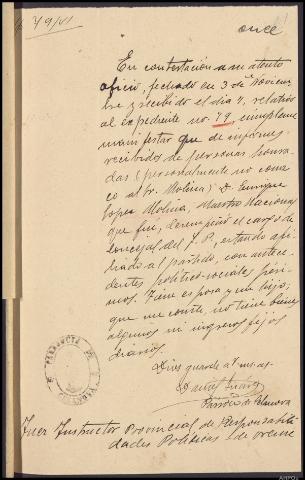 79/41
once
En contestación a su atento
oficio, fechado en 3 de Noviem
bre y recibido el día 7, relativo
al expediente no. 79 cumpleme
manifestar que de informes
recibidos de personas honra
das (personalmente no conoz
co al Sr. Molina) D. Enrique
López Molina, Maestro Nacional
que fué, desempeñó el cargo de
Concejal del F. P., estando afi
liado al partido, con antece
dentes político-sociales pési
mos. Tiene esposa y un hijo;
que me conste, no tiene bienes
algunos ni ingresos fijos
diarios.
Dios guarde a V. ms. as.
Párroco de Celanova
Juez Instructor Provincial de Responsabili
dades Políticas de Orense